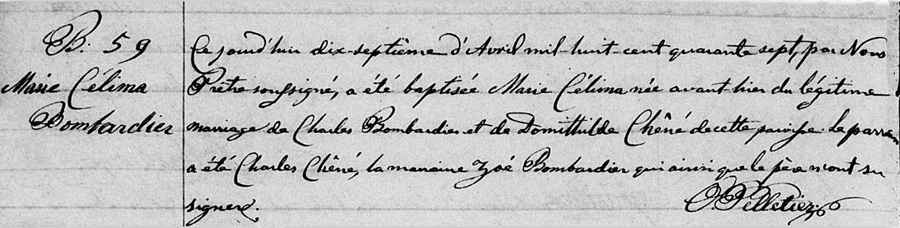 B. 59
Marie Célima
Bombardier
Ce jourd'hui dix-septième d'Avril mil-huit-cent quarante sept, par Nous
Prêtre soussigné, a été baptisée Marie Célima née avant-hier du légitime
mariage de Charles Bombardier et de Domithilde Chêné de cette paroisse. Le parrain
a été Charles Chêné, la marraine Zoé Bombardier qui ainsi que le père n'ont su
signer.
O. Pelletier